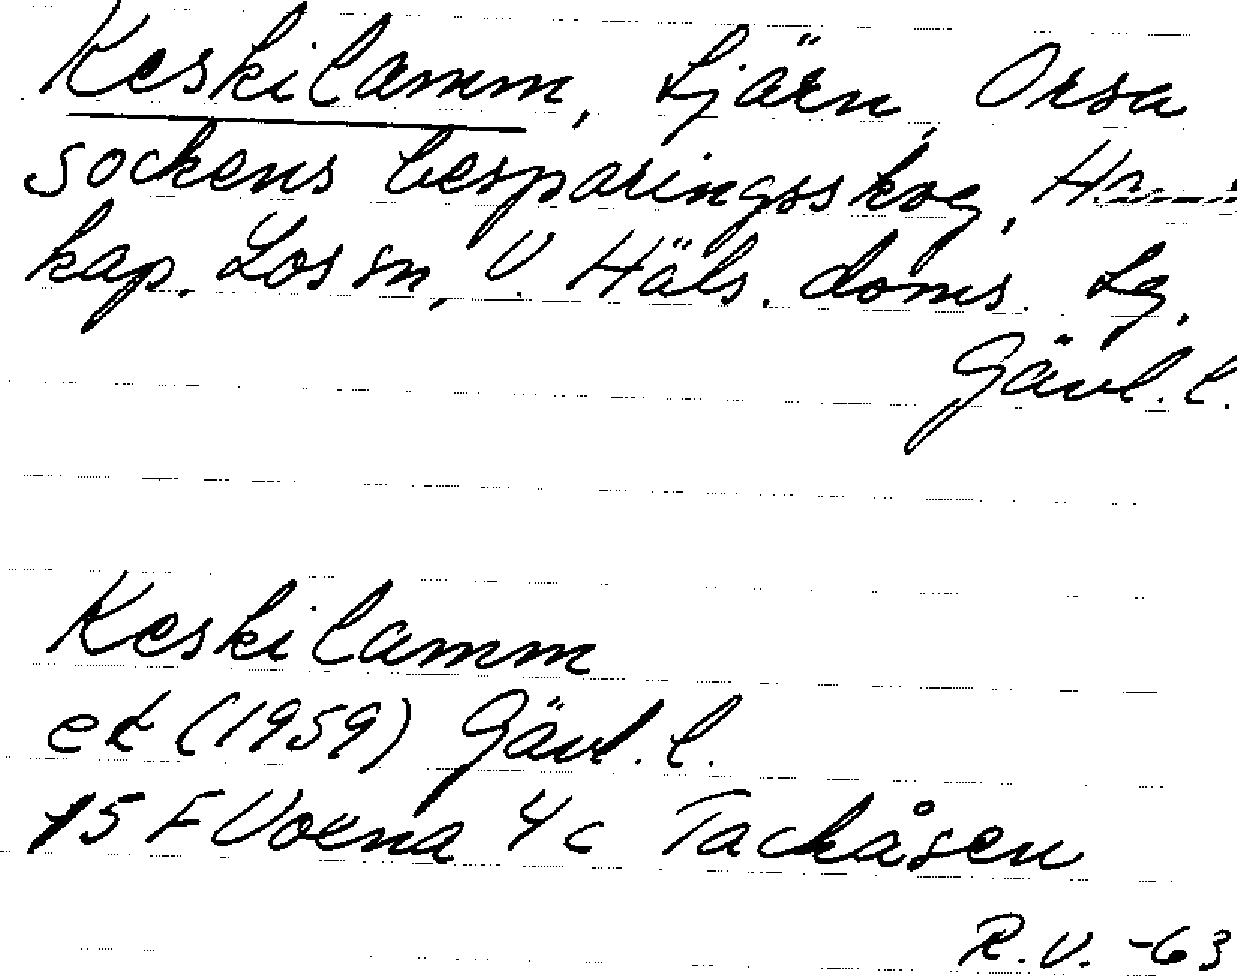 Keskilamm, tjärn, Orsa
sockens besparingsskog,
kap. Los sn, V. Häls. doms. Lg.
Gävl. l.
Keskilamm
ek (1959) Gävl. l.
15 F Voxna 4 c Tackåsen
R.V. -63